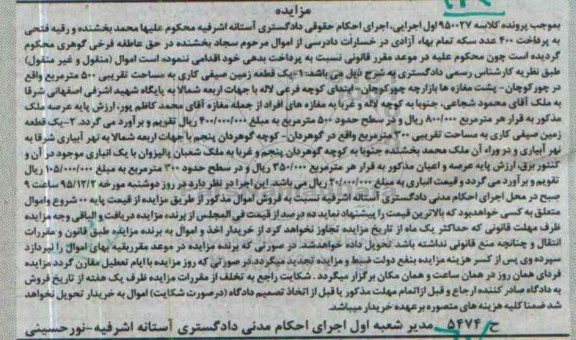 مزایده
بموجب پرونده کلاسه ۹۵۰۰۲۷ اول اجرایی، اجرای احکام حقوقی دادگستری آستانه اشرفیه محکوم علیها محمد بخشنده و رقیه فتحی
به پرداخت ۴۰۰ عدد سکه تمام بهار آزادی در خسارات دادرسی از اموال مرحوم سجاد بخشنده در حق عاطفه فرخی گوهری محکوم
گردیده است چون محکوم علیه در موعد مقرر قانونی نسبت به پرداخت بدهی خود اقدامی ننموده است اموال (منقول و غیر منقول)
طبق نظریه کارشناس رسمی دادگستری به شرح ذیل می باشد: ۱-یک قطعه زمین صیفی کاری به مساحت تقریبی ۵۰۰ مترمربع واقع
در چورکوچان- پشت مغازه ها بازارچه چورکوچان- ابتدای کوچه فرعی لاله با جهات اربعه شمالا به پایگاه شهید اشرفی اصفهانی شرقا
به ملک آقای محمود شجاعی، جنوبا به کوچه لاله و غربا به مغازه های افراد از جمله مغازه آقای محمد کاظم پور، ارزش پایه عرصه ملک
مذکور به قرار هر مترمربع ۸۰۰/۰۰۰ ریال و در سطح حدود ۵۰۰ مترمربع به مبلغ ۴۰۰/۰۰۰/۰۰۰ ریال تقویم و برآورد می گردد. ۲-یک قطعه
زمین صیفی کاری به مساحت تقریبی ۳۰۰ مترمربع واقع در گوهردان- کوچه گوهردان پنجم با جهات اربعه شمالا به نهر آبیاری شرقا به
نهر آبیاری و در وراء آن ملک محمد بخشنده جنوبا به کوچه گوهردان پنجم و غربا به ملک شعبان پالیزوان با یک انباری موجود در آن و
کنتور برق، ارزش پایه عرصه و اعیان مذکور به قرار هر مترمربع ۳۵۰/۰۰۰ ریال و در سطح حدود ۳۰۰ مترمربع به مبلغ ۱۰۵/۰۰۰/۰۰۰ ریال
تقویم و برآورد می گردد و قیمت انباری به مبلغ ۲۰/۰۰۰/۰۰۰ ریال می باشد. این اجرا در نظر دارد در روز دوشنبه مورخه ۹۵/۱۲/۲ ساعت ۹
صبح در محل اجرای احکام مدنی دادگستری آستانه اشرفیه نسبت به فروش اموال مذکور از طریق مزایده از قیمت پایه ۰۰ شروع و اموال
متعلق به کسی خواهد بود که بالاترین قیمت را پیشنهاد نماید ده درصد از قیمت فی المجلس از برنده مزایده دریافت و الباقی وجه مزایده
ظرف مهلت قانونی که حداکثر یک ماه از تاریخ مزایده تجاوز نخواهد کرد از خریدار اخذ و اموال به برنده مزایده طبق قانون و مقررات
انتقال و چنانچه منع قانونی نداشته باشد تحویل داده خواهد شد. در صورتی که برنده مزایده در موعد مقرر بقیه بهای اموال را نپردازد
سپرده وی پس از کسر هزینه مزایده بنفع دولت ضبط و مزایده تجدید میگردد. در صورتی که روز مزایده با ایام تعطیل مقارن گردد مزایده
فردای همان روز در همان ساعت و همان مکان برگزار میگردد. شکایت راجع به تخلف از مقررات مزایده ظرف یک هفته از تاریخ فروش
به دادگاه صادر کننده ارجاع و قبل از اتمام مهلت مذکور یا قبل از اتخاذ تصمیم دادگاه (درصورت شکایت) اموال به خریدار تحویل نخواهد
شد ضمنا کلیه هزینه های متصوره بر عهده خریدار میباشد.
ح ۵۴۷۴ مدیر شعبه اول اجرای احکام مدنی دادگستری آستانه اشرفیه-نورحسینی